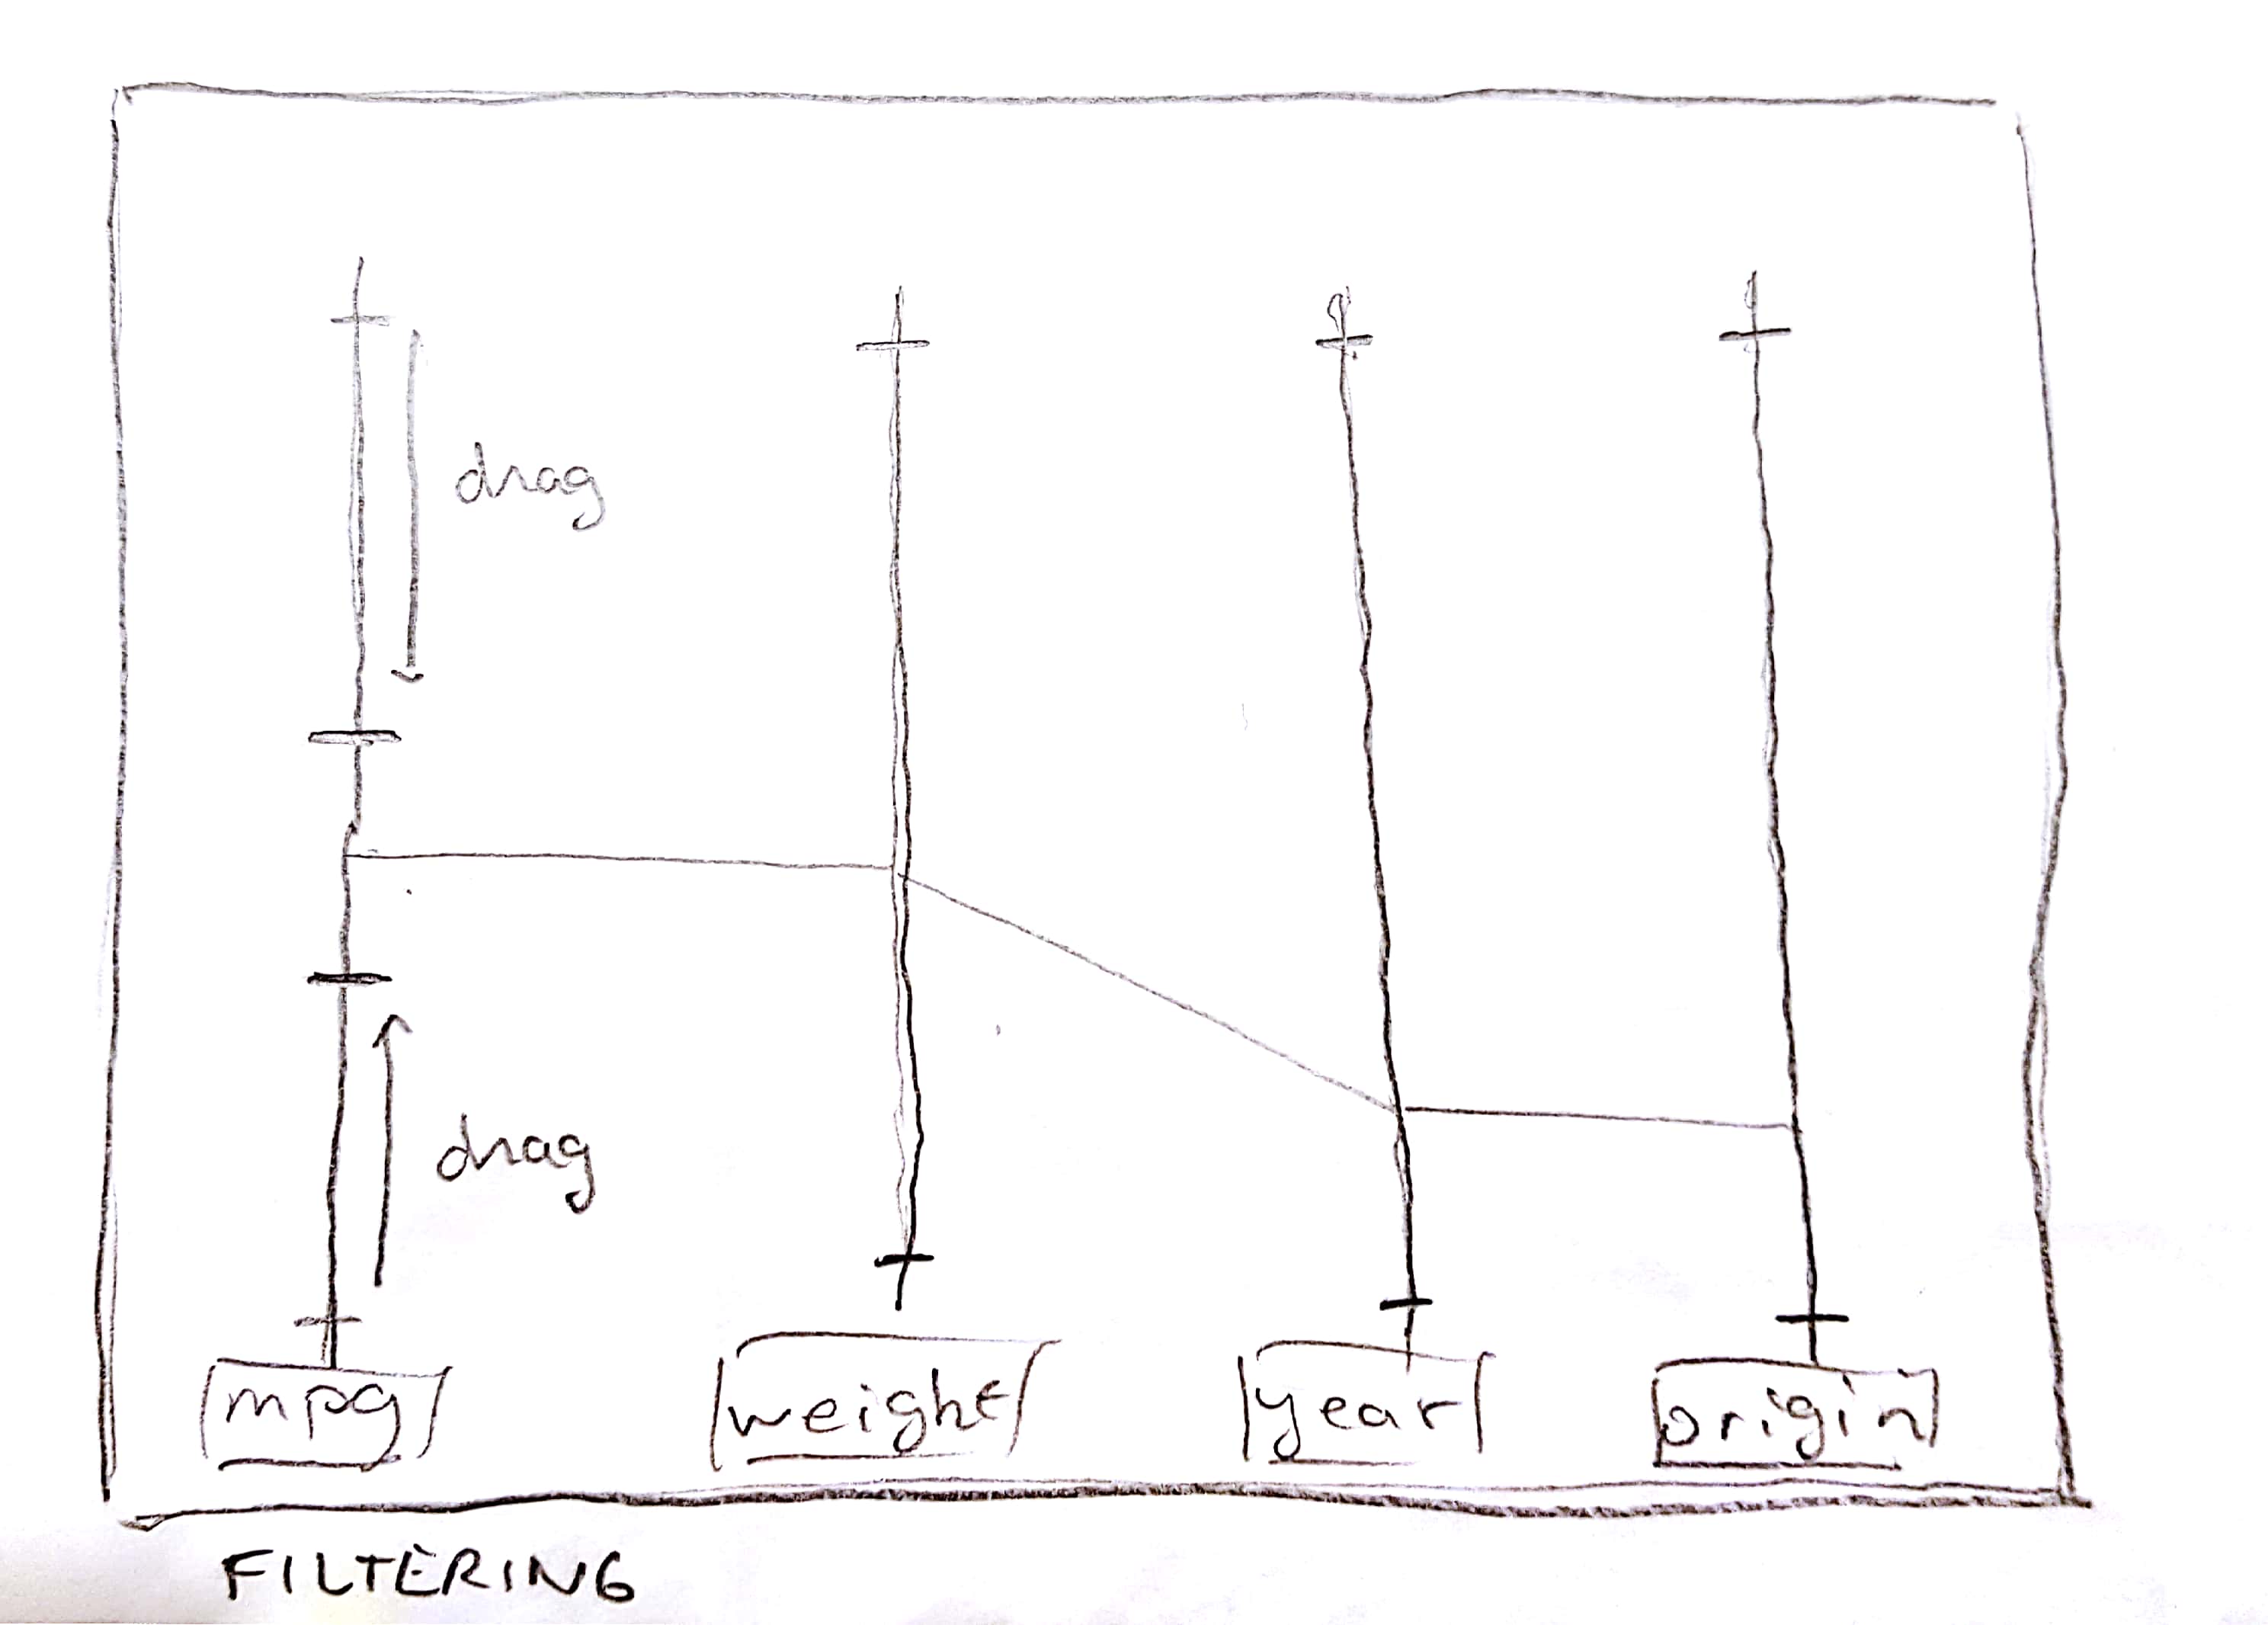 drag
drag
mpg
weight
year
origin
FILTERING